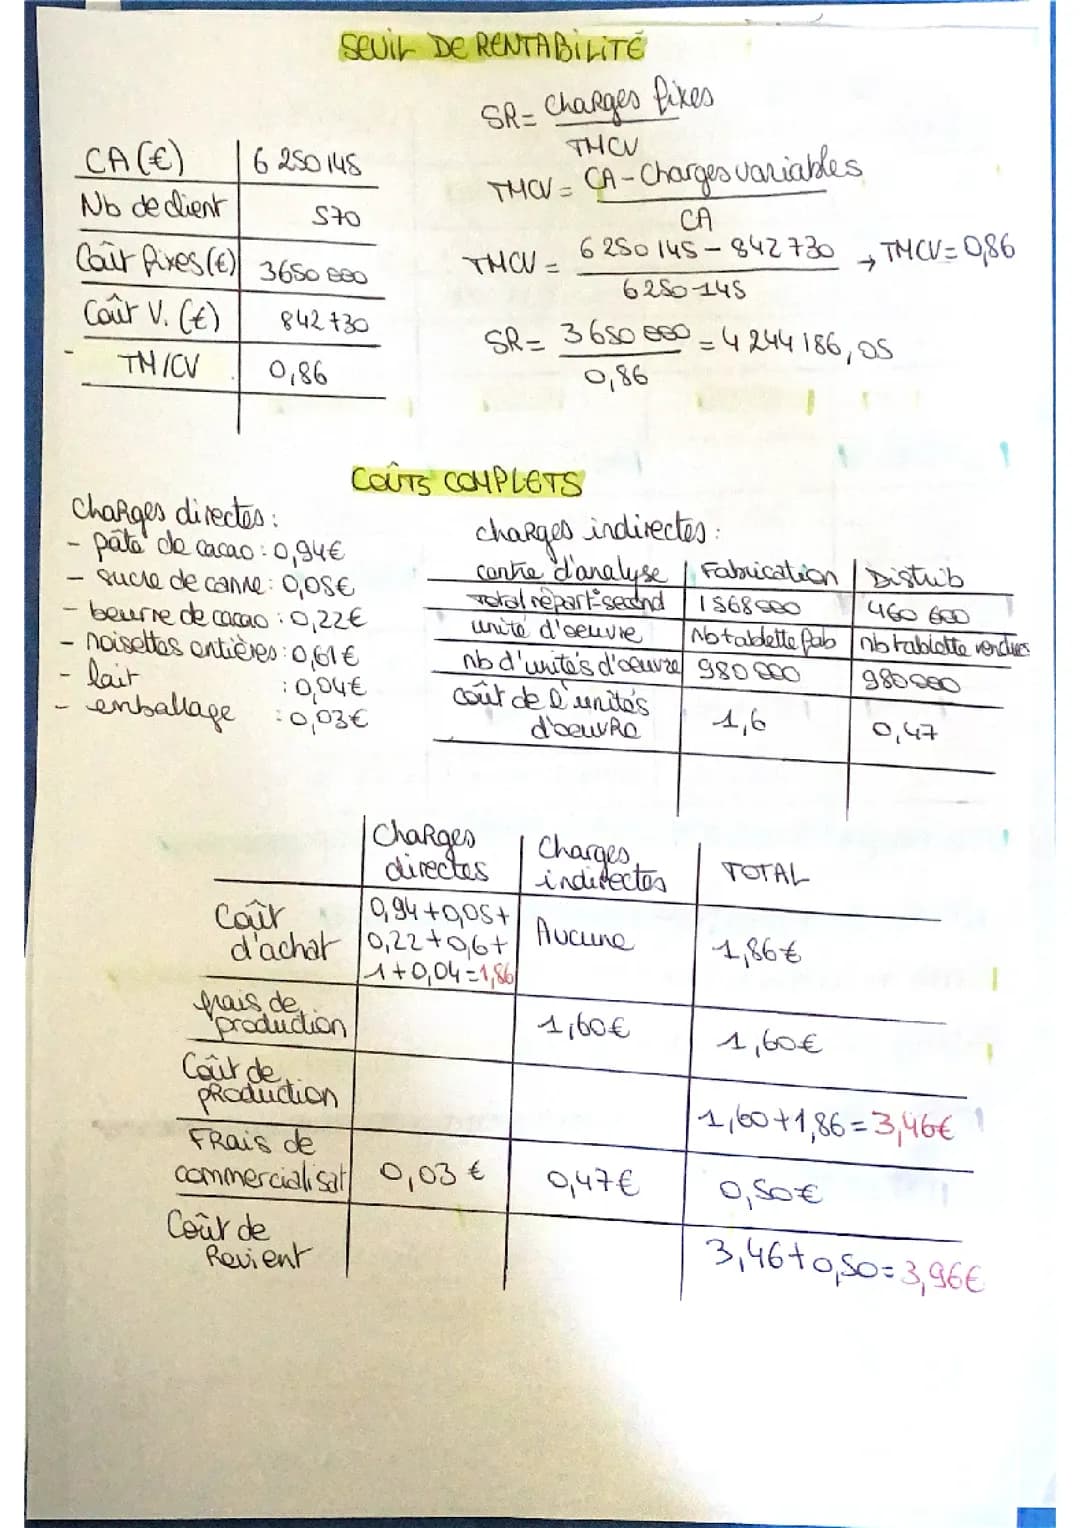 SEUIL DE RENTABILITÉ
SR= Charges fixes
TMCV
CA (€) 6 250 145
TMCV = CA - Charges variables
CA
Nb de client 570
TMCV = 6 250 145 - 842 730 → TMCV = 0,86
6 250 145
Coût fixes (€) 3650 000
Coût V. (€) 842 730
SR= 3 650 000 = 4 244 186,05
0,86
TM/CV 0,86
COÛTS COMPLETS
Charges directes :
- pâte de cacao : 0,94€
- sucre de canne : 0,05€
- beurre de cacao : 0,22€
- noisettes entières : 0,61€
- lait : 0,04€
- emballage : 0,03€
charges indirectes :
centre d'analyse Fabrication Distrib
Total répart° second 1568000 460 600
unité d'oeuvre Nb tablette fab nb tablette vendues
nb d'unités d'oeuvre 980 000 980 000
coût de l'unités
d'oeuvre 1,6 0,47
Charges directes Charges indirectes TOTAL
Coût d'achat 0,94+0,05+ Aucune 1,86€
0,22+0,6+
1+0,04=1,86
frais de production 1,60€ 1,60€
Coût de production 1,60+1,86=3,46€
FRais de commercialisat 0,03 € 0,47€ 0,50€
Coût de Revient 3,46+0,50=3,96€